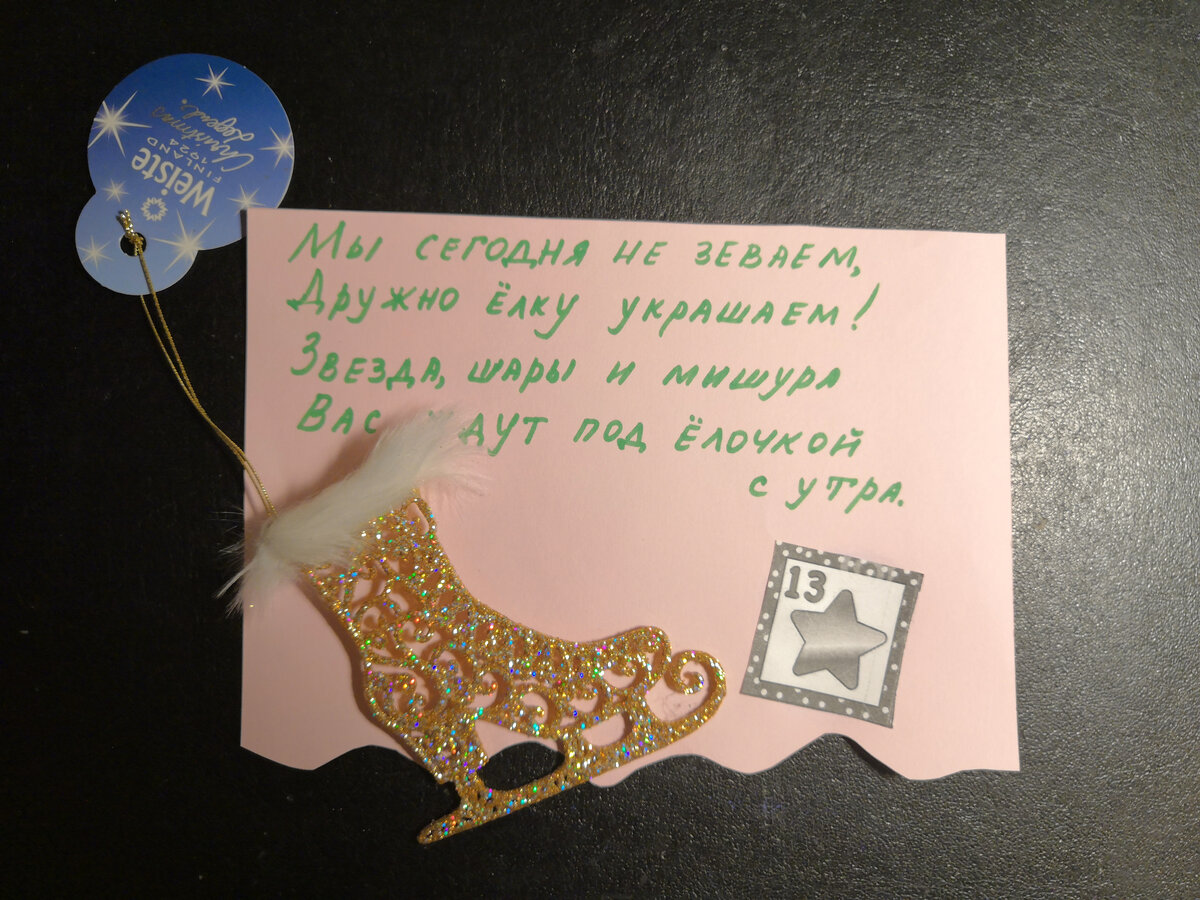 Мы сегодня не зеваем,
Дружно ёлку украшаем!
Звезда, шары и мишура
Вас дут под ёлочкой
с утра.
13
Weiste
FINLAND
1924
Christmas
Legends.